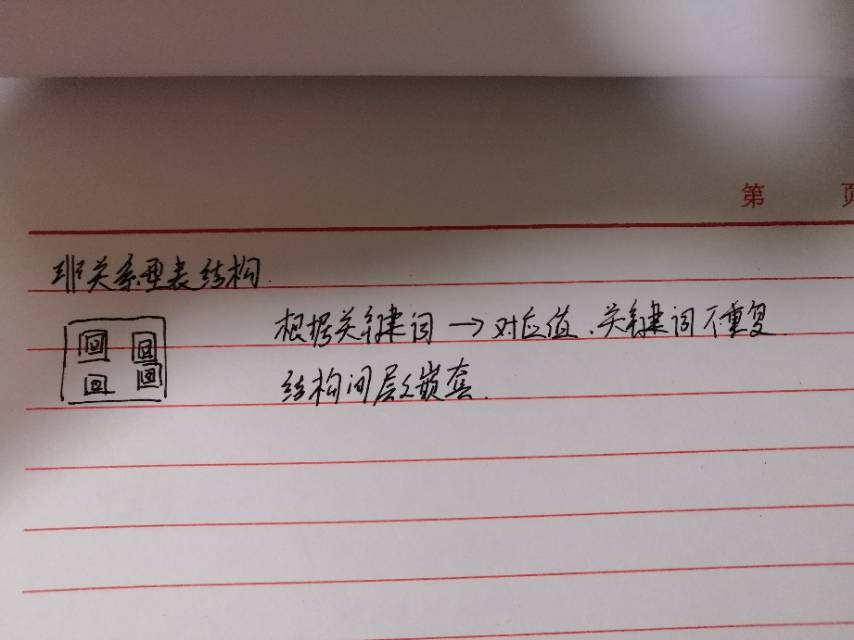 第 页
非关系型表结构
根据关键词→对应值、关键词不重复
结构间层层嵌套.